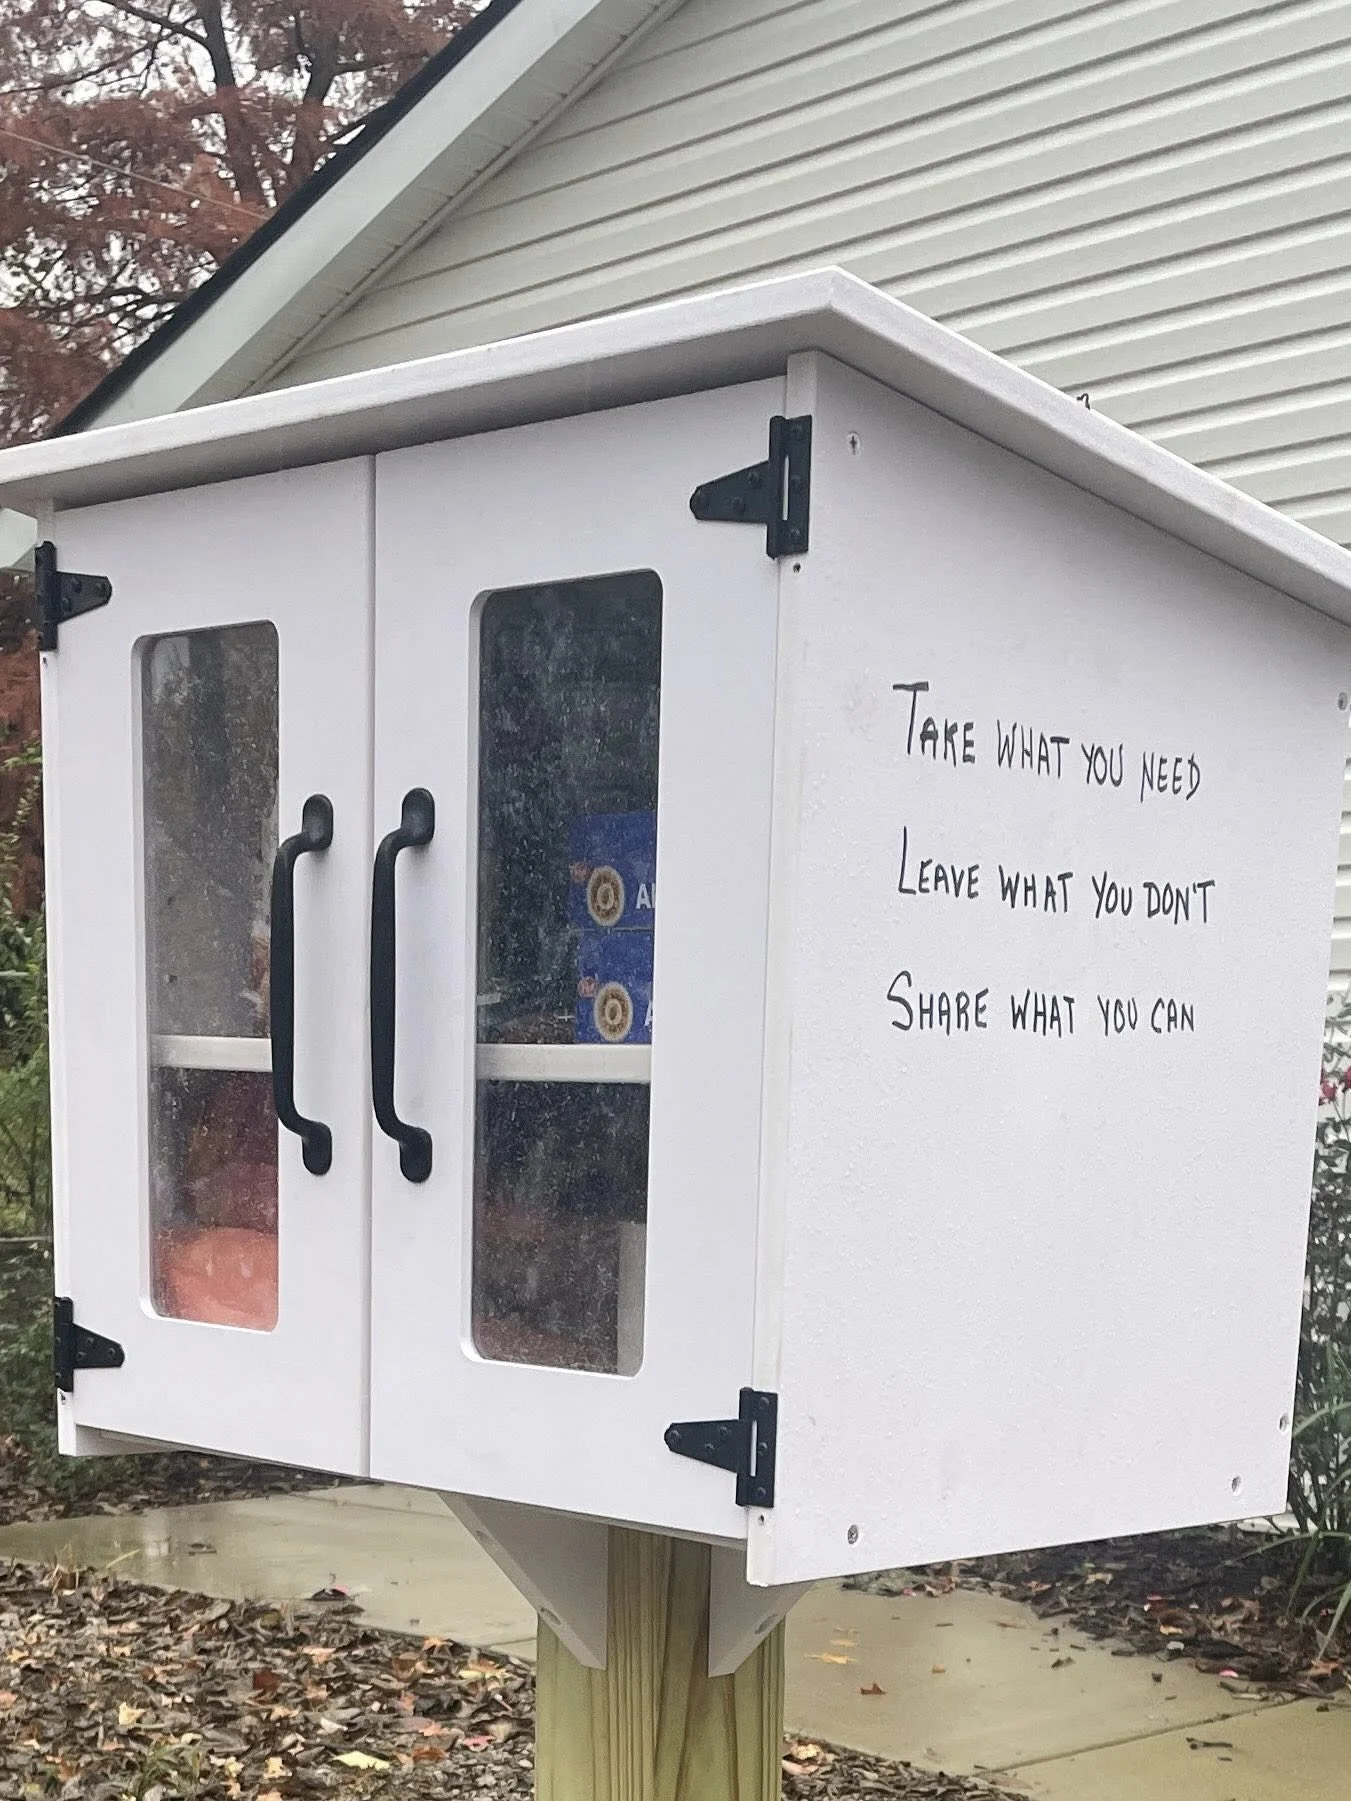 Take what you need
Leave what you don't
Share what you can